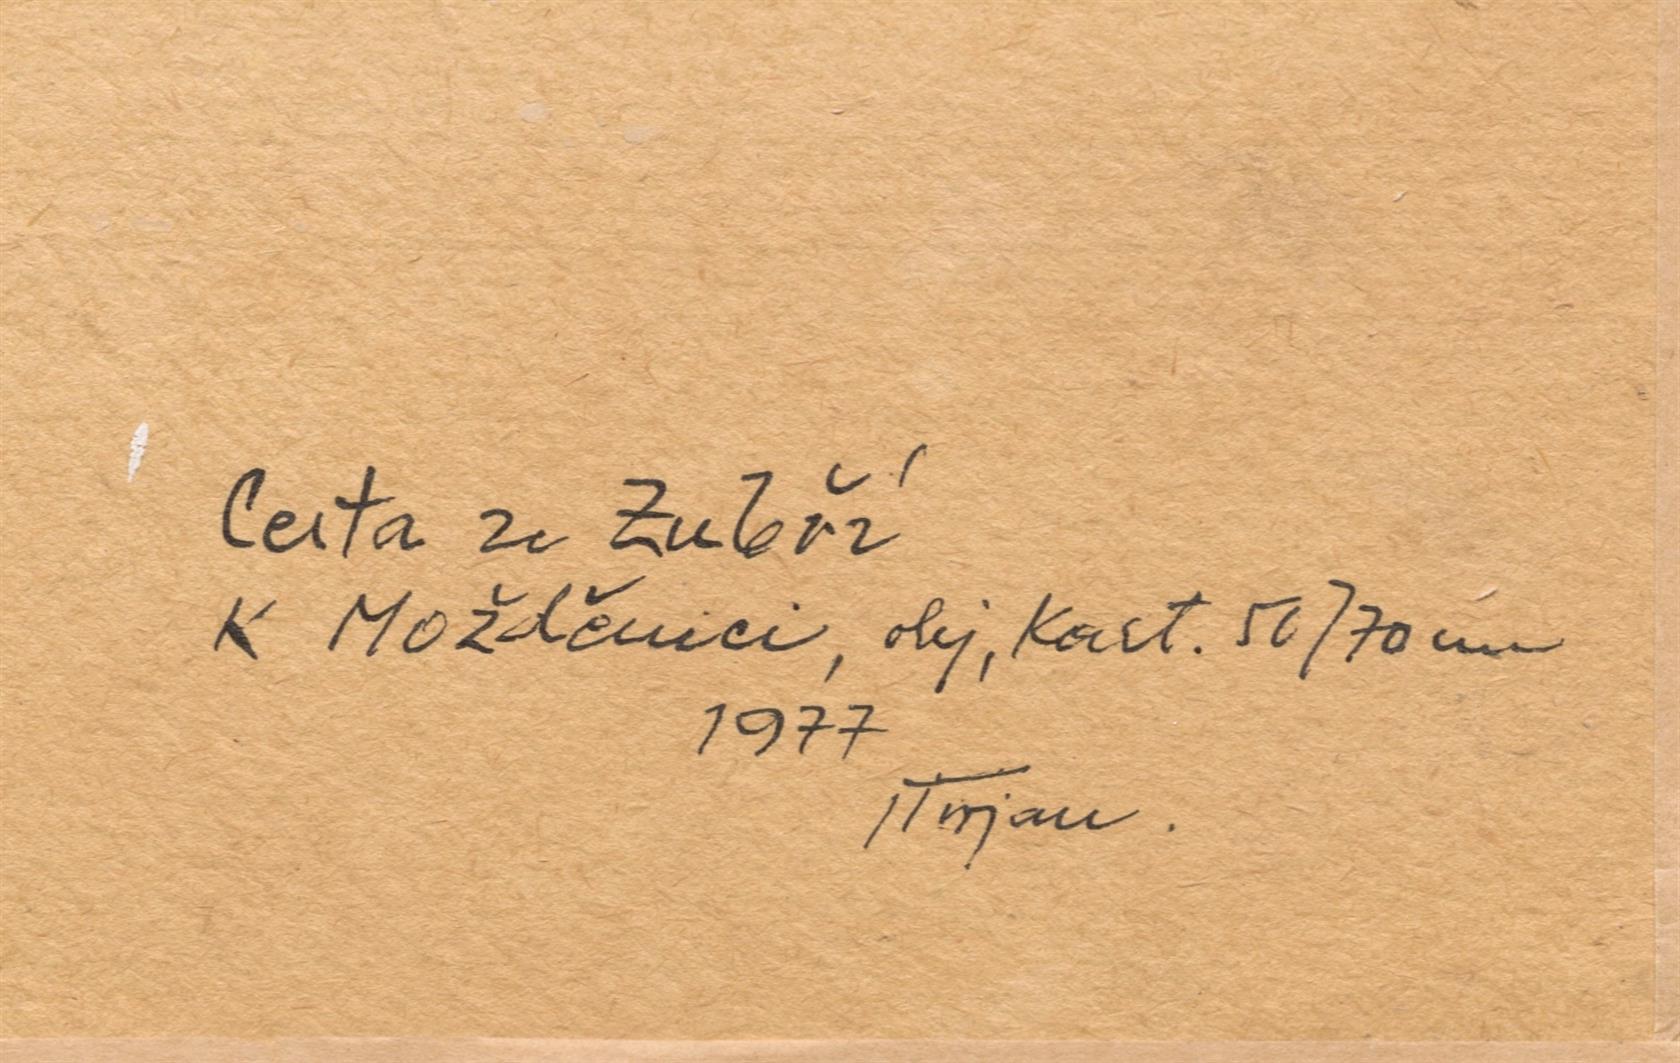 Cesta ze Zubří
K Možděnici, olej, Kart. 50/70 cm
1977